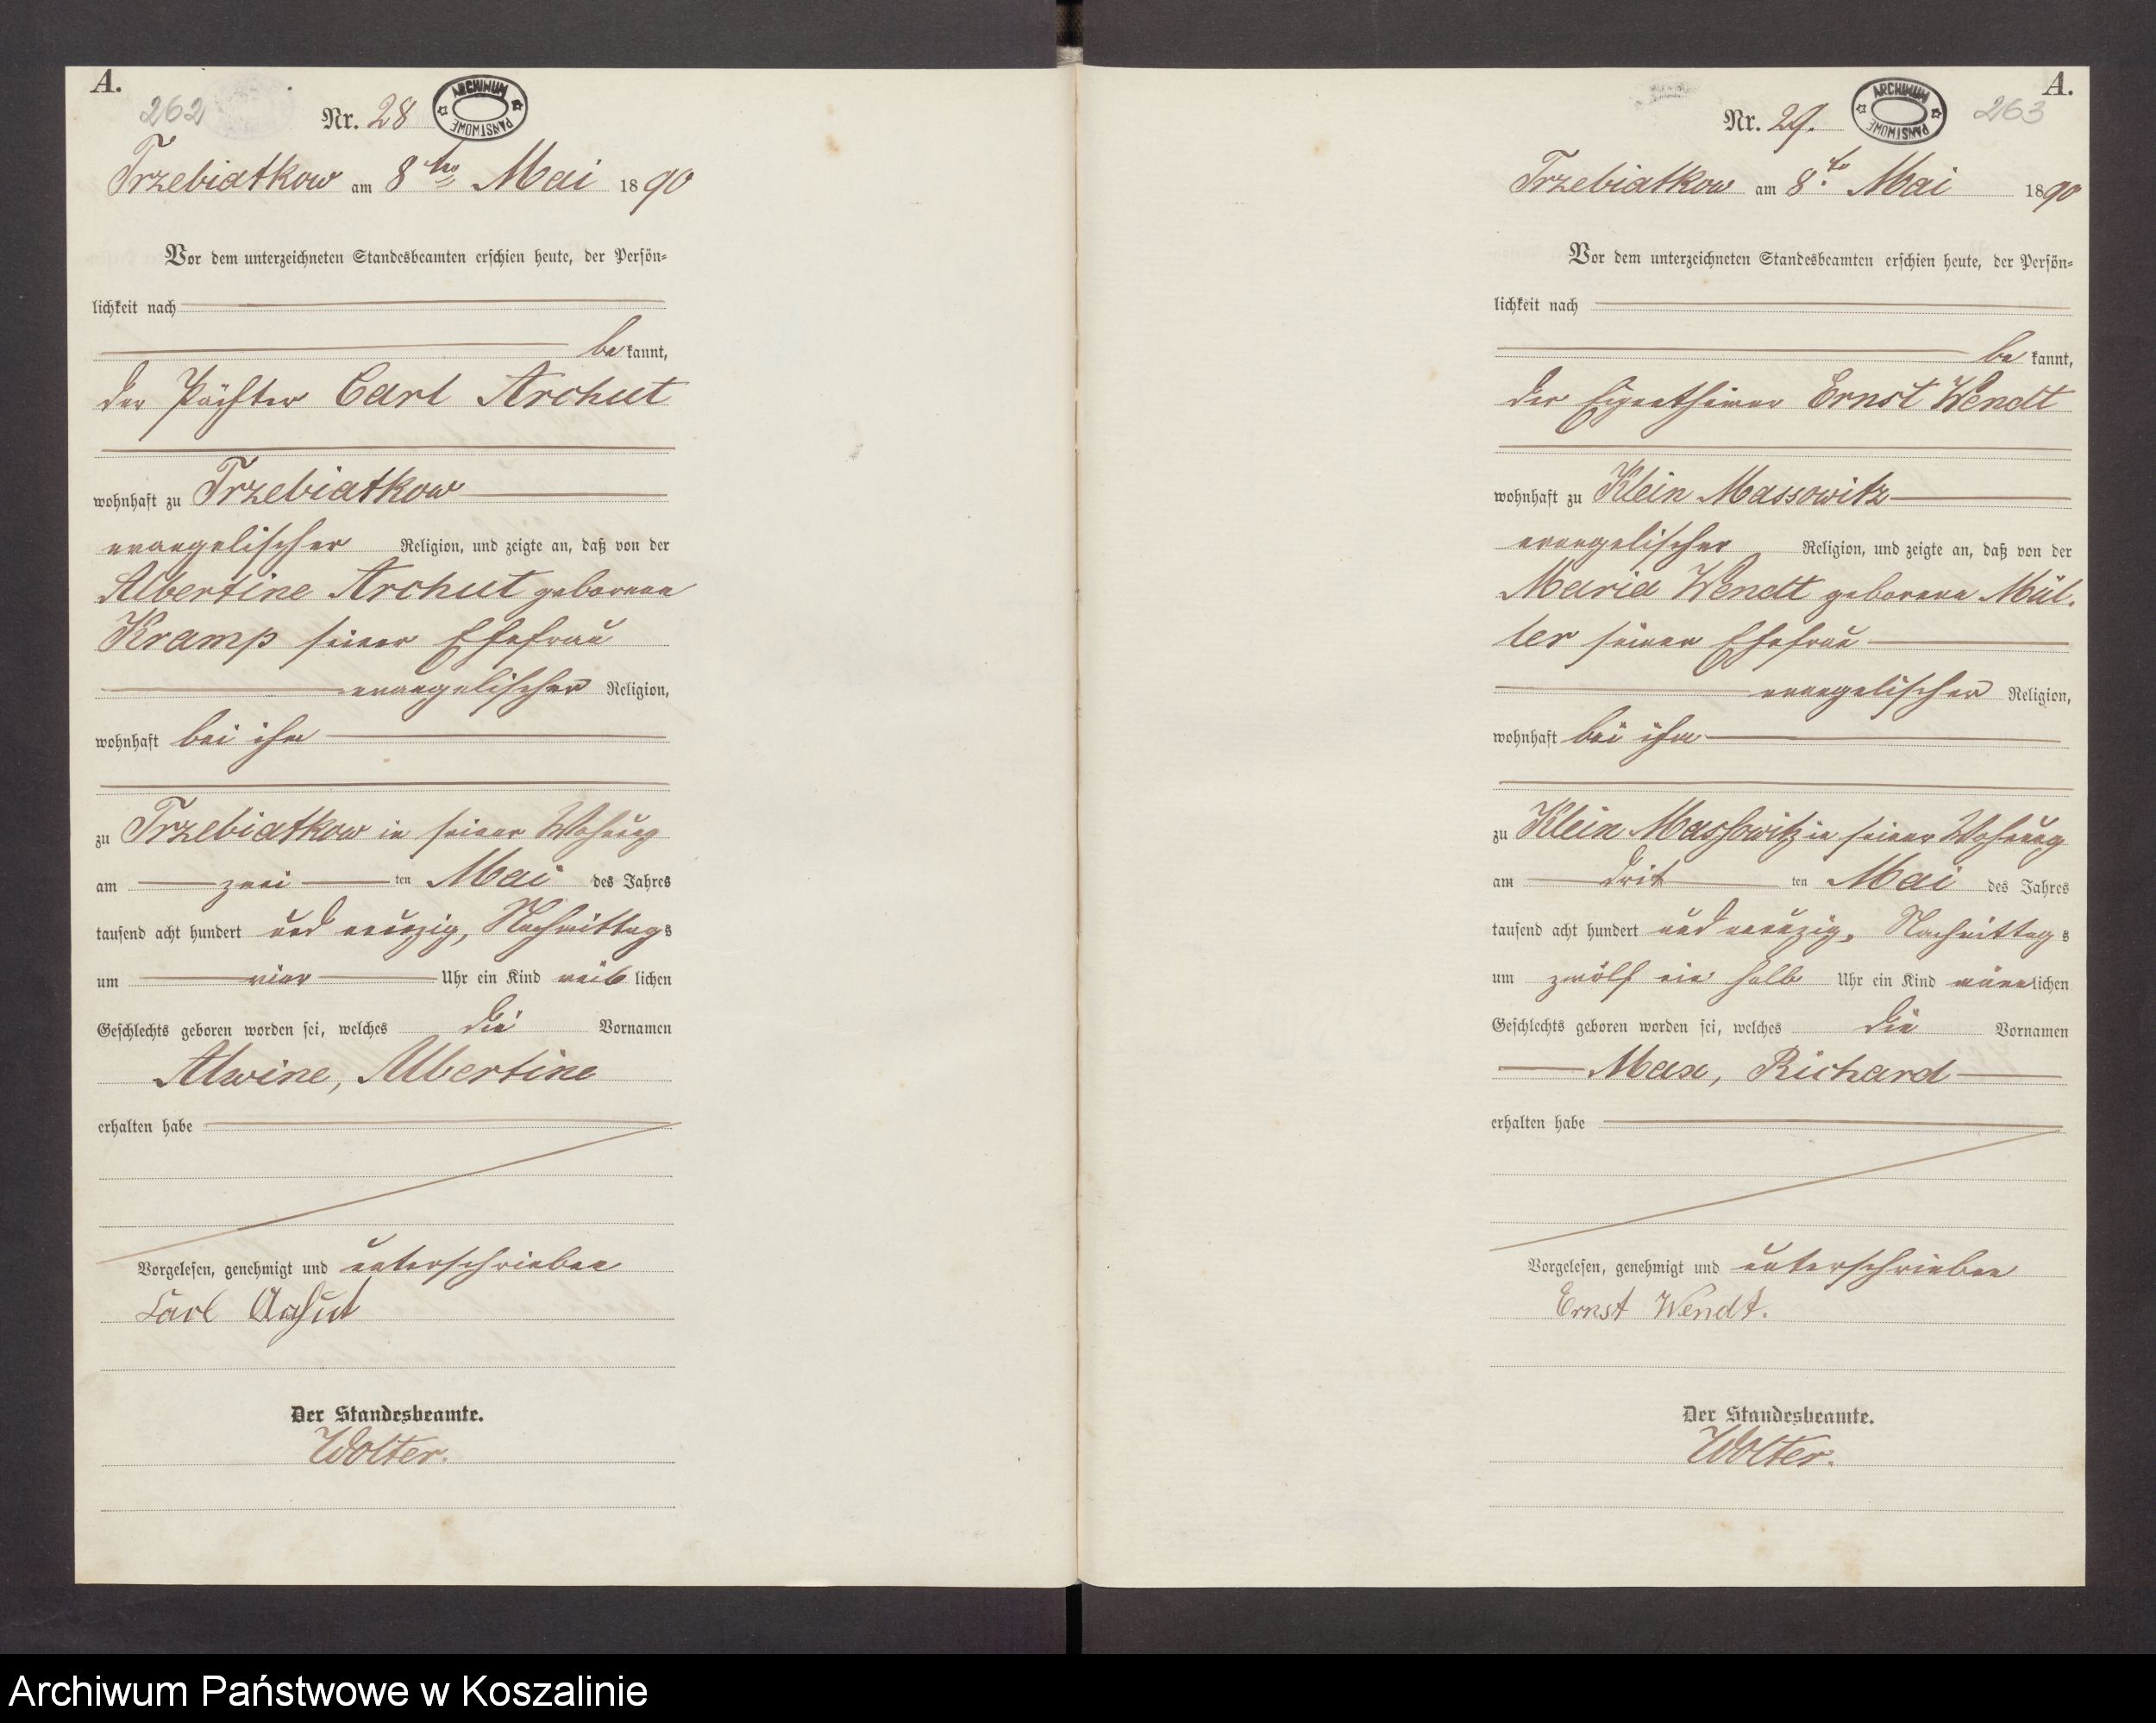 A.
262
Nr. 28
ARCHIWUM PAŃSTWOWE
Trzebiatkow am 8ten Mai 1890
Vor dem unterzeichneten Standesbeamten erschien heute, der Persön-
lichkeit nach
bekannt,
der Pächter Carl Archut
wohnhaft zu Trzebiatkow
evangelischer Religion, und zeigte an, daß von der
Albertine Archut geborenen
Kramp seiner Ehefrau
evangelischer Religion,
wohnhaft bei ihm
zu Trzebiatkow in seiner Wohnung
am zweiten Mai des Jahres
tausend acht hundert und neunzig, Nachmittags
um vier Uhr ein Kind weiblichen
Geschlechts geboren worden sei, welches die Vornamen
Alwine, Albertine
erhalten habe
Vorgelesen, genehmigt und unterschrieben
Carl Achut
Der Standesbeamte.
Wolter.
A.
Nr. 29.
ARCHIWUM PAŃSTWOWE
263
Trzebiatkow am 8ten Mai 1890
Vor dem unterzeichneten Standesbeamten erschien heute, der Persön-
lichkeit nach
bekannt,
der Eigenthümer Ernst Wendt
wohnhaft zu Klein Massowitz
evangelischer Religion, und zeigte an, daß von der
Maria Wendt geborene Mül-
ler seiner Ehefrau
evangelischer Religion,
wohnhaft bei ihm
zu Klein Massowitz in seiner Wohnung
am dritten Mai des Jahres
tausend acht hundert und neunzig, Nachmittags
um zwölf ein halb Uhr ein Kind männlichen
Geschlechts geboren worden sei, welches die Vornamen
Max, Richard
erhalten habe
Vorgelesen, genehmigt und unterschrieben
Ernst Wendt.
Der Standesbeamte.
Wolter.
Archiwum Państwowe w Koszalinie